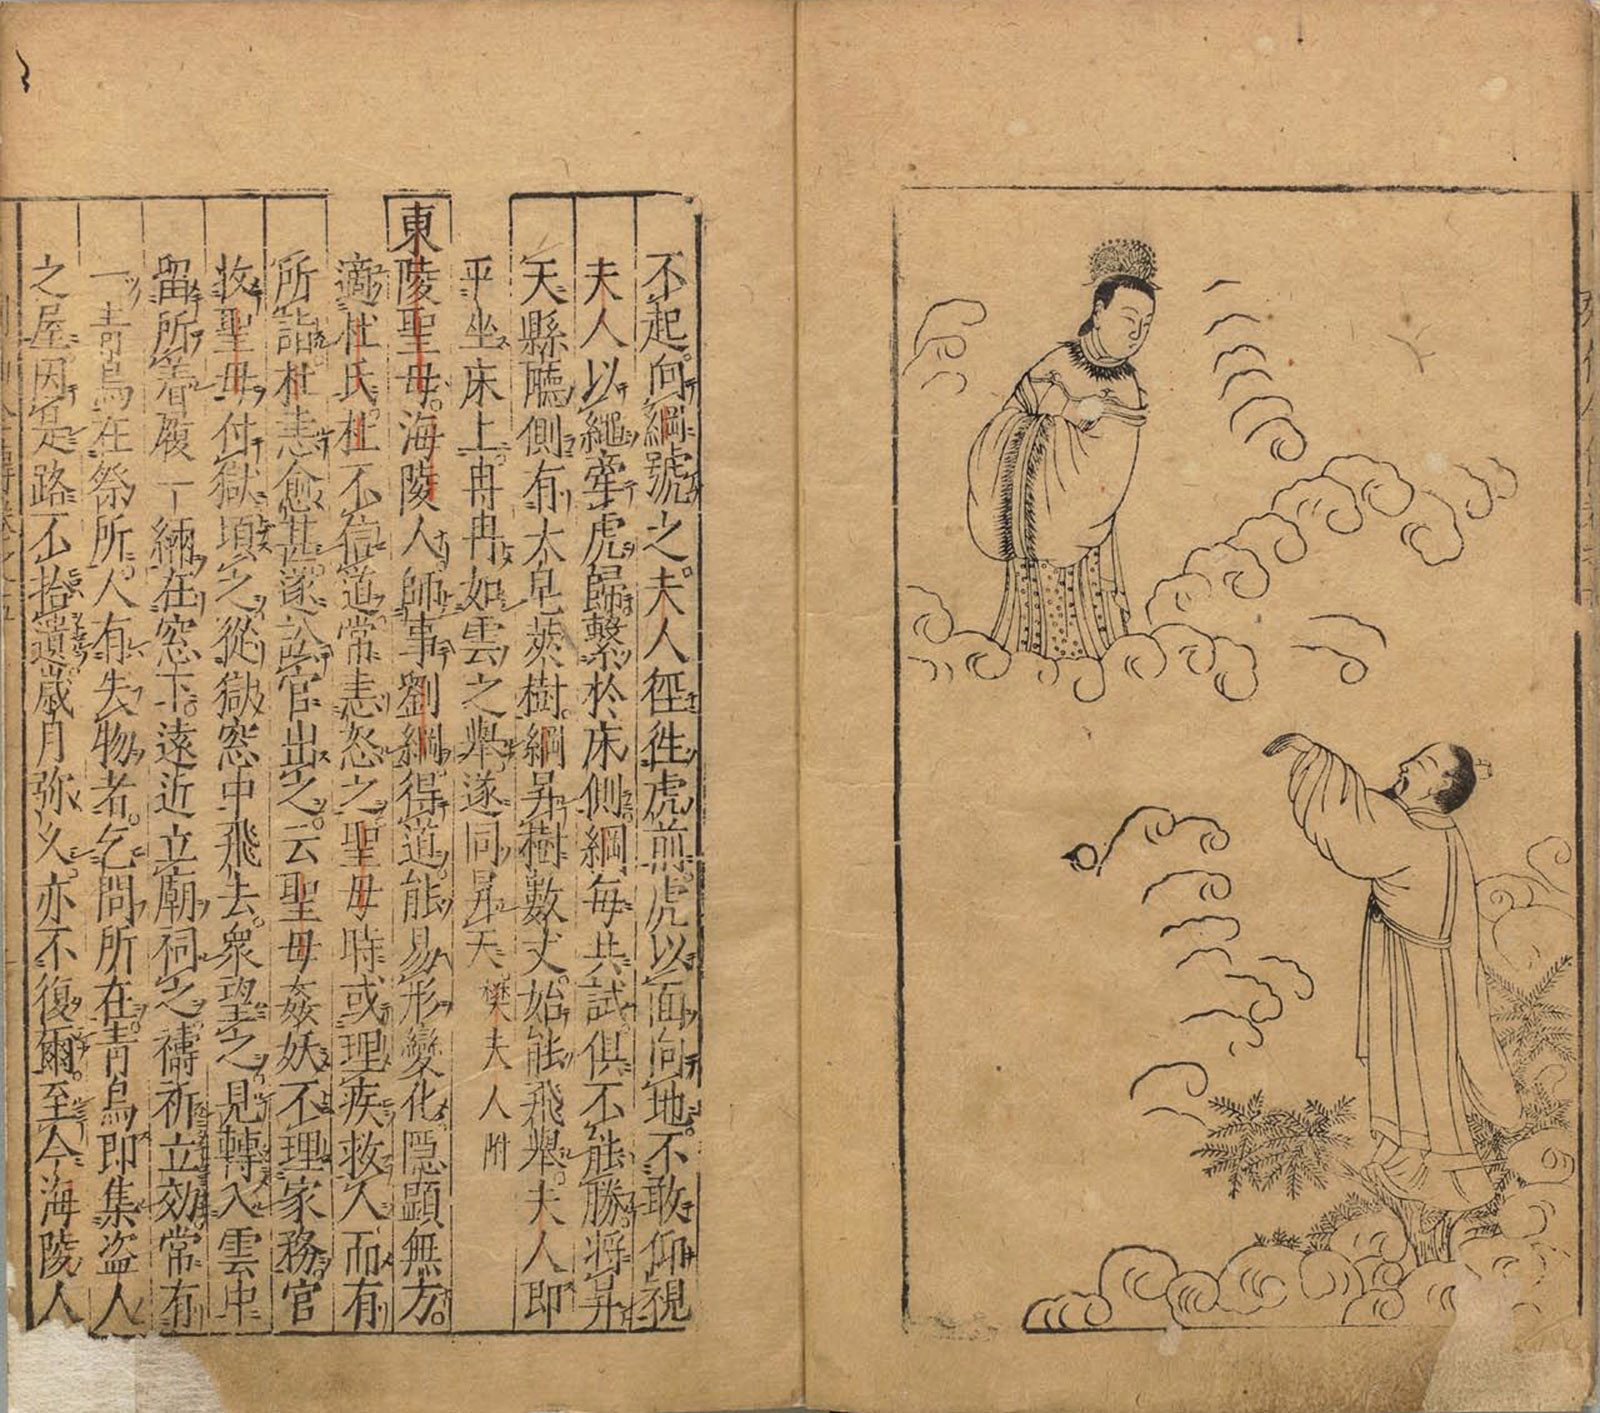 不起向綱號之夫人徑徃虎前虎以面向地不敢仰視
夫人以繩牽虎歸繫於床側綱每共試俱不能勝將昇
天縣廳側有大皀莢樹綱昇樹數丈始能飛舉夫人即
平坐床上冉冉如雲之舉遂同昇天樊夫人附
東陵聖母海陵人師事劉綱得道能易形變化隠顕無方
適杜氏杜不信道常恚怒之聖母時或理疾救人而有
所詣杜恚愈甚遂訟官出之云聖母姦妖不理家務官
收聖母付獄頃之從獄窓中飛去衆望之見轉入雲中
留所着履一緉在窓下遠近立廟祠之禱祈立効常有
一青鳥在祭所人有失物者乞問所在青鳥即集盗人
之屋因是路不拾遺歳月弥久亦不復爾至今海陵人